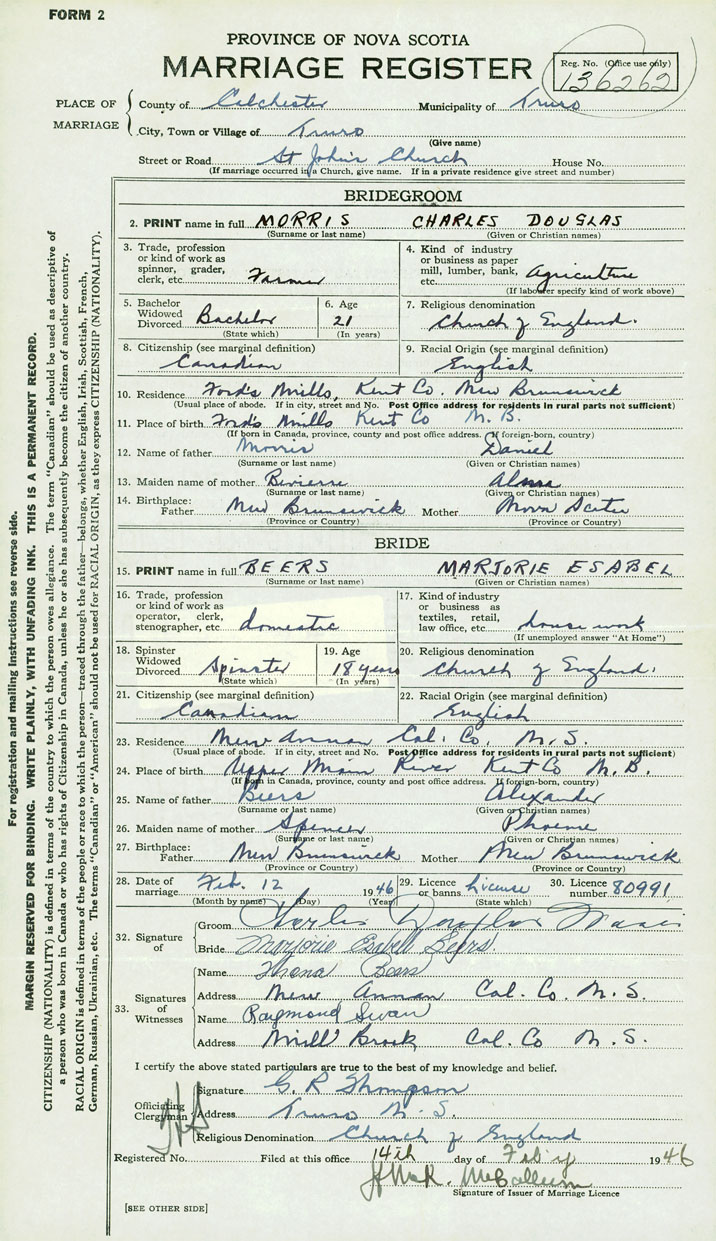 FORM 2
PROVINCE OF NOVA SCOTIA
MARRIAGE REGISTER
Reg. No. (Office use only)
136262
PLACE OF MARRIAGE
County of Colchester Municipality of Truro
City, Town or Village of Truro
(Give name)
Street or Road St John's Church House No.
(If marriage occurred in a Church, give name. If in a private residence give street and number)
BRIDEGROOM
2. PRINT name in full MORRIS CHARLES DOUGLAS
(Surname or last name) (Given or Christian names)
3. Trade, profession or kind of work as spinner, grader, clerk, etc. Farmer
4. Kind of industry or business as paper mill, lumber, bank, etc. Agriculture
(If labourer specify kind of work above)
5. Bachelor Widowed Divorced Bachelor
(State which)
6. Age 21
(In years)
7. Religious denomination Church of England.
8. Citizenship (see marginal definition) Canadian
9. Racial Origin (see marginal definition) English
10. Residence Ford's Mills, Kent Co. New Brunswick
(Usual place of abode. If in city, street and No. Post Office address for residents in rural parts not sufficient)
11. Place of birth Ford's Mills Kent Co N. B.
(If born in Canada, province, county and post office address. If foreign-born, country)
12. Name of father Morris Daniel
(Surname or last name) (Given or Christian names)
13. Maiden name of mother Alma
(Surname or last name) (Given or Christian names)
14. Birthplace: Father New Brunswick Mother Nova Scotia
(Province or Country) (Province or Country)
BRIDE
15. PRINT name in full BEERS MARJORIE ESABEL
(Surname or last name) (Given or Christian names)
16. Trade, profession or kind of work as operator, clerk, stenographer, etc. domestic
17. Kind of industry or business as textiles, retail, law office, etc. house work
(If unemployed answer "At Home")
18. Spinster Widowed Divorced Spinster
(State which)
19. Age 18 years
(In years)
20. Religious denomination Church of England.
21. Citizenship (see marginal definition) Canadian
22. Racial Origin (see marginal definition) English
23. Residence New Annan Col. Co. N. S.
(Usual place of abode. If in city, street and No. Post Office address for residents in rural parts not sufficient)
24. Place of birth Upper Main River Kent Co N. B.
(If born in Canada, province, county and post office address. If foreign-born, country)
25. Name of father Beers Alexander
(Surname or last name) (Given or Christian names)
26. Maiden name of mother Spencer Phoeme
(Surname or last name) (Given or Christian names)
27. Birthplace: Father New Brunswick Mother New Brunswick
(Province or Country) (Province or Country)
28. Date of marriage Feb. 12 1946
(Month by name) (Day) (Year)
29. Licence or banns License
(State which)
30. Licence number 80991
32. Signature of
Groom Charles Douglas Morris
Bride Marjorie Esabell Beers.
33. Signatures of Witnesses
Name Beers
Address New Annan Col. Co. N. S.
Name Raymond Swan
Address Mill Brook Col. Co N. S.
I certify the above stated particulars are true to the best of my knowledge and belief.
Officiating Clergyman
Signature G. R Thompson
Address Truro N. S.
Religious Denomination Church of England
Registered No. Filed at this office 14th day of Feb'y 1946
McCallum
Signature of Issuer of Marriage Licence
[SEE OTHER SIDE]
For registration and mailing instructions see reverse side.
MARGIN RESERVED FOR BINDING. WRITE PLAINLY, WITH UNFADING INK. THIS IS A PERMANENT RECORD.
CITIZENSHIP (NATIONALITY) is defined in terms of the country to which the person owes allegiance. The term "Canadian" should be used as descriptive of
a person who was born in Canada or who has rights of Citizenship in Canada, unless he or she has subsequently become the citizen of another country.
RACIAL ORIGIN is defined in terms of the people or race to which the person—traced through the father—belongs, whether English, Irish, Scottish, French,
German, Russian, Ukrainian, etc. The terms "Canadian" or "American" should not be used for RACIAL ORIGIN, as they express CITIZENSHIP (NATIONALITY).